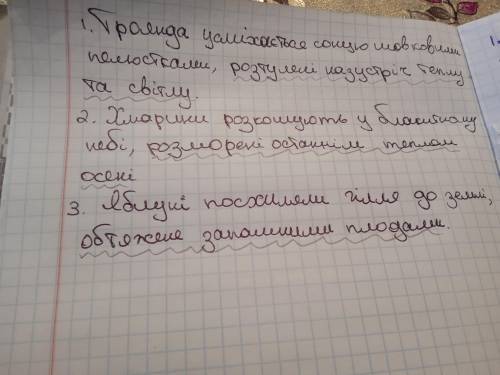 1. Троянда усміхається сонцю шовковими
пелюстками, розтулені назустріч теплу
та світлу.
2. Хмаринки розкошують у блакитному
небі, розморені останнім теплом
осені
3. Яблуні посхиляли гілля до землі,
обтяжене запашними плодами.